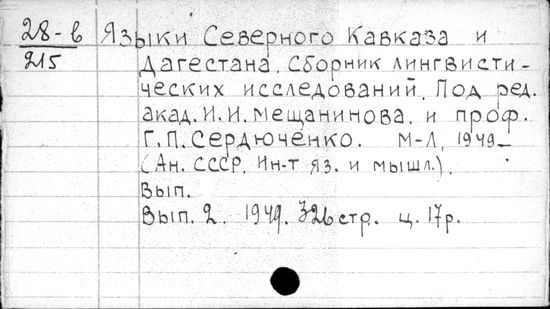 28-в Языки Северного Кавказа и
215 Дагестана. Сборник лингвисти-
ческих исследований. Под ред.
акад. И.И. Мещанинова. и проф.
Г.П. Сердюченко. М-Л, 1949_
(Ан. СССР. Ин-т яз. и мышл.).
Вып.
Вып. 2. 1949. 326 стр. ц. 17 р.